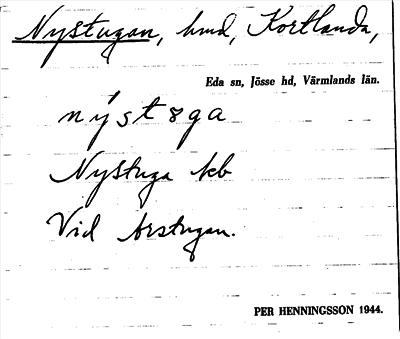 Nystugan, hmd, Kortlanda,
Eda sn, Jösse hd, Värmlands län.
nýstøga
Nystuga kb
Vid Arstugan.
PER HENNINGSSON 1944.